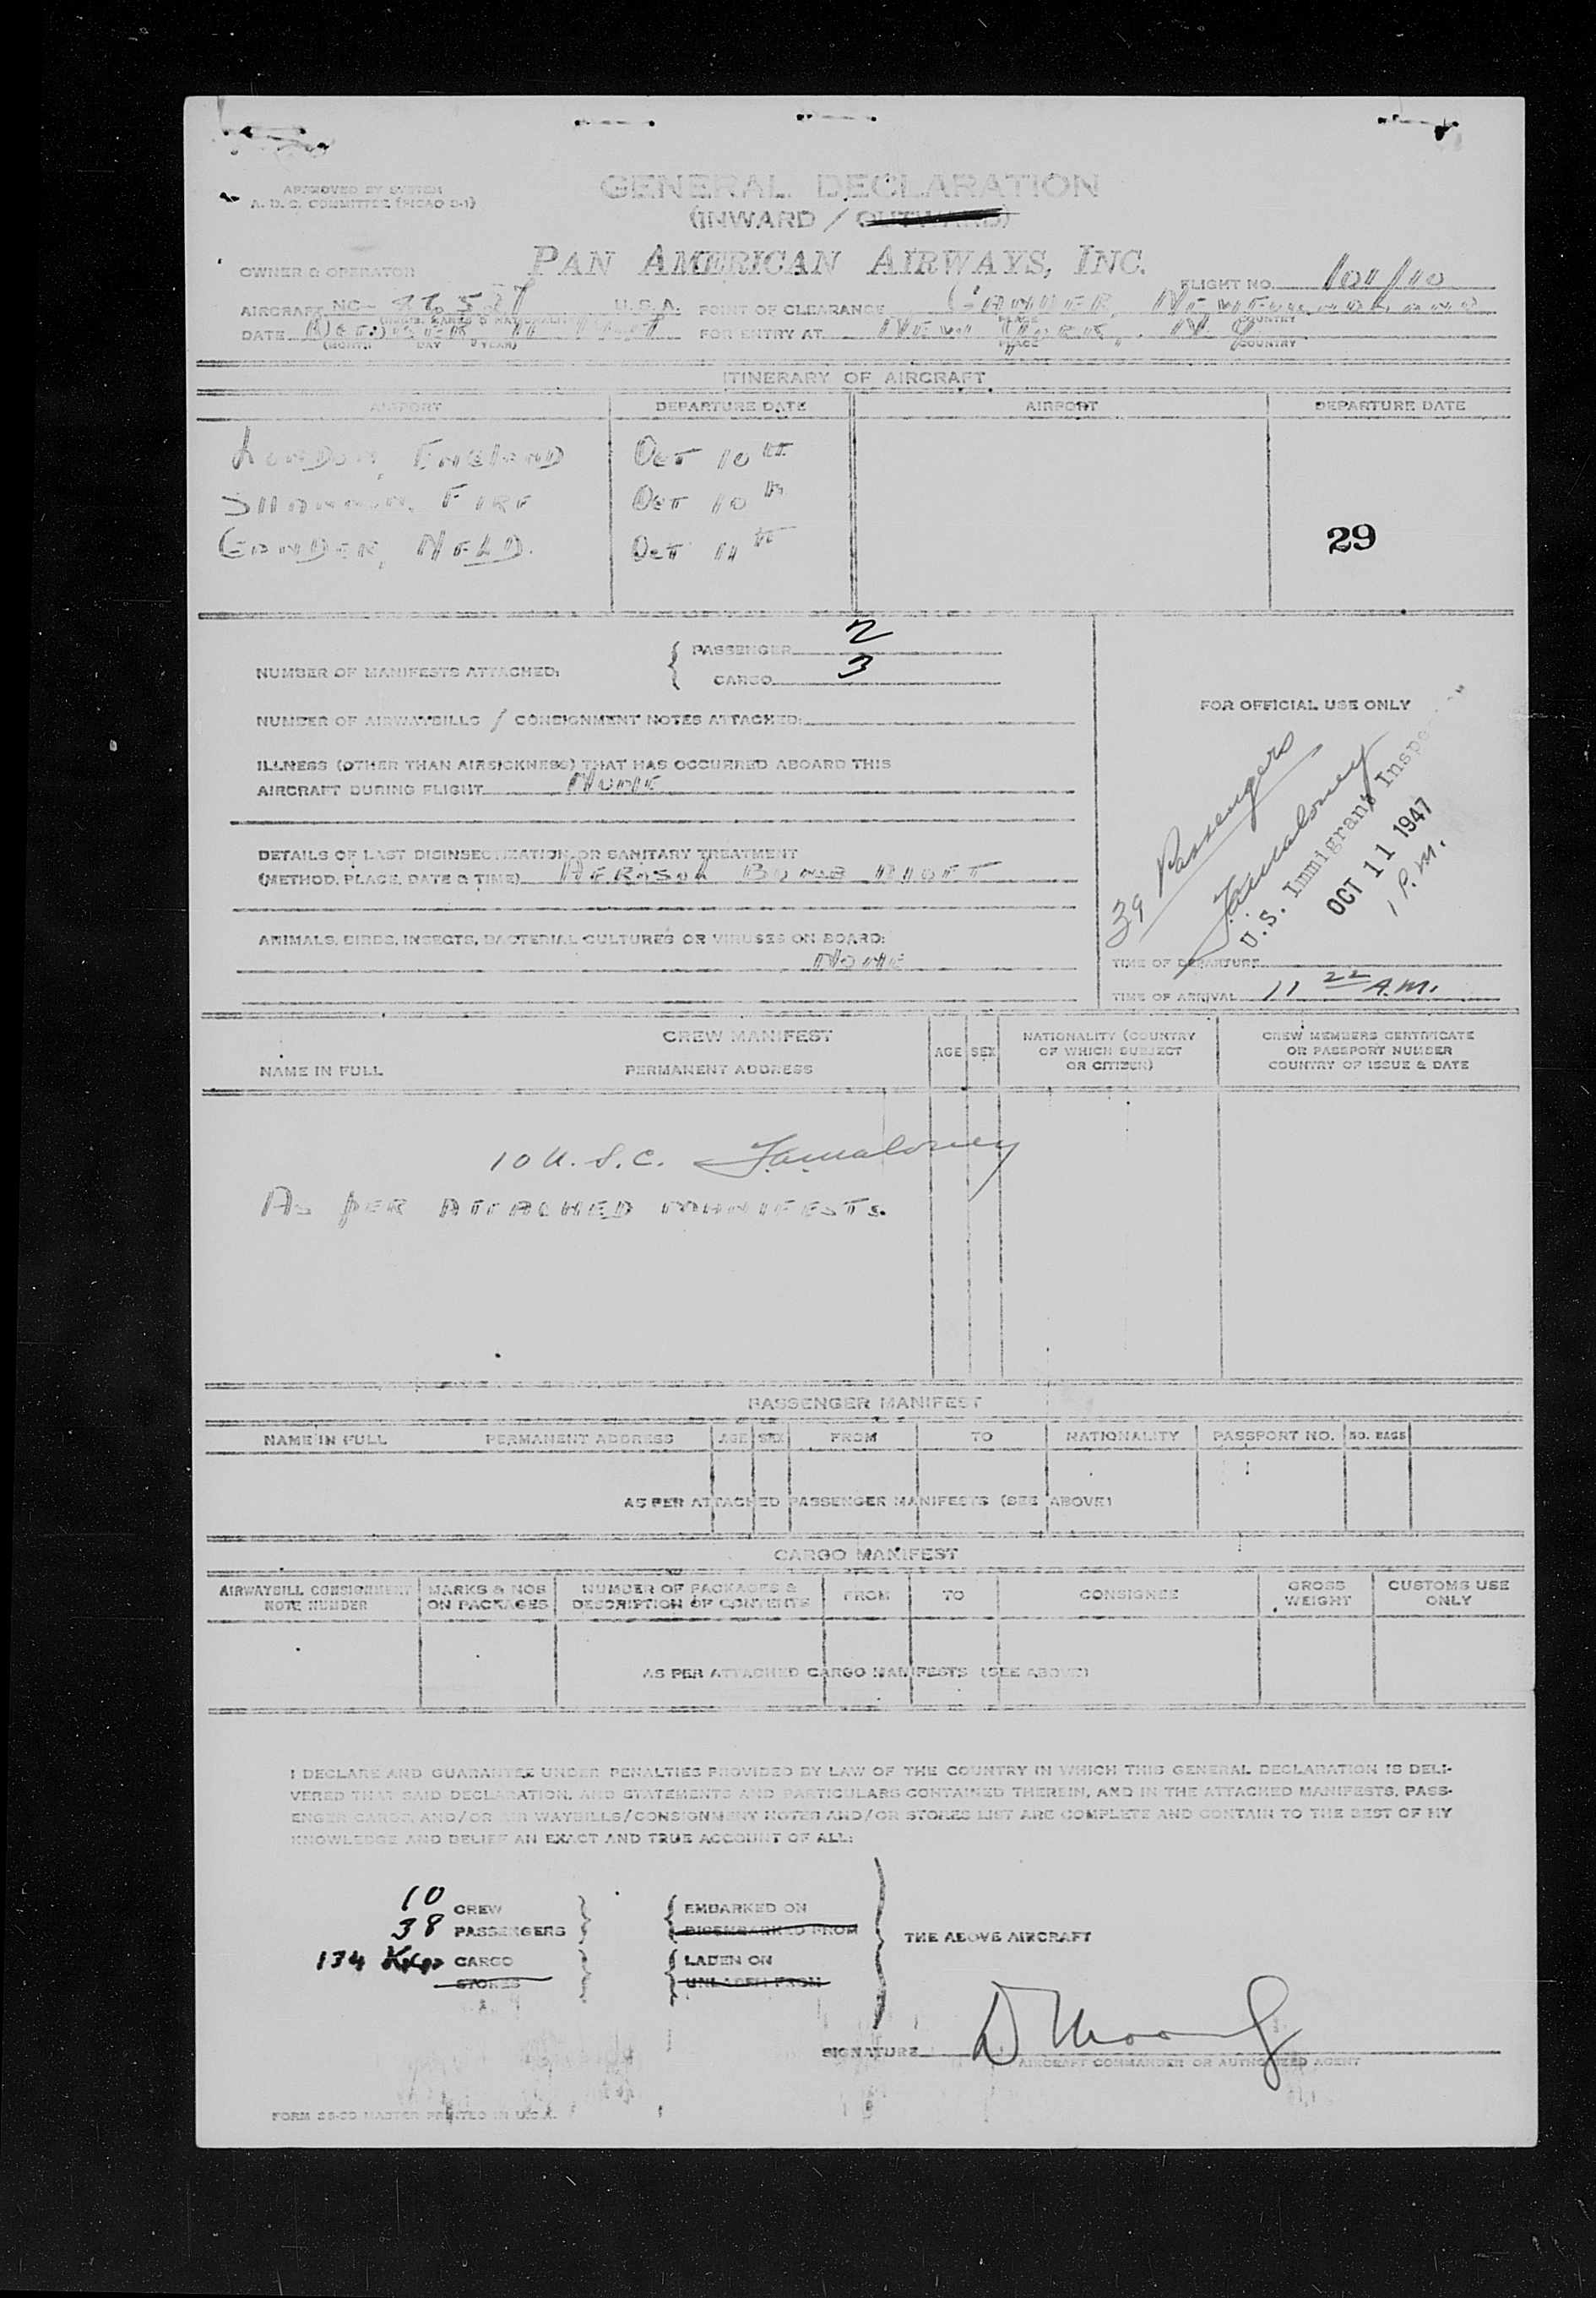 APPROVED BY SYSTEM
A. D. C. COMMITTEE (PICAO D-1)
GENERAL DECLARATION
(INWARD / OUTWARD)
OWNER & OPERATOR PAN AMERICAN AIRWAYS, INC.
FLIGHT NO. 101/10
AIRCRAFT NC- U.S.A. POINT OF CLEARANCE GANDER, NEWFOUNDLAND
PLACE COUNTRY
DATE OCTOBER 11 1947 FOR ENTRY AT NEW YORK, N.Y.
(MONTH DAY YEAR) PLACE COUNTRY
ITINERARY OF AIRCRAFT
AIRPORT DEPARTURE DATE AIRPORT DEPARTURE DATE
LONDON, ENGLAND OCT 10th
SHANNON, EIRE OCT 10th
GANDER, NFLD. OCT 11th
29
NUMBER OF MANIFESTS ATTACHED: PASSENGER 2
CARGO 3
NUMBER OF AIRWAYBILLS / CONSIGNMENT NOTES ATTACHED:
ILLNESS (OTHER THAN AIRSICKNESS) THAT HAS OCCURRED ABOARD THIS
AIRCRAFT DURING FLIGHT NONE
DETAILS OF LAST DISINSECTIZATION OR SANITARY TREATMENT
(METHOD, PLACE, DATE & TIME) AEROSOL BOMB
ANIMALS, BIRDS, INSECTS, BACTERIAL CULTURES OR VIRUSES ON BOARD:
NONE
FOR OFFICIAL USE ONLY
39 Passengers
F.A. Maloney
U.S. Immigrant Inspe
OCT 11 1947
1 P.M.
TIME OF DEPARTURE
TIME OF ARRIVAL 11 22 A.M.
CREW MANIFEST
NAME IN FULL PERMANENT ADDRESS AGE SEX NATIONALITY (COUNTRY OF WHICH SUBJECT OR CITIZEN) CREW MEMBERS CERTIFICATE OR PASSPORT NUMBER COUNTRY OF ISSUE & DATE
10 U.S.C. F.A. Maloney
AS PER ATTACHED MANIFESTS.
PASSENGER MANIFEST
NAME IN FULL PERMANENT ADDRESS AGE SEX FROM TO NATIONALITY PASSPORT NO. NO. BAGS
AS PER ATTACHED PASSENGER MANIFESTS (SEE ABOVE)
CARGO MANIFEST
AIRWAYBILL CONSIGNMENT NOTE NUMBER MARKS & NOS ON PACKAGES NUMBER OF PACKAGES & DESCRIPTION OF CONTENTS FROM TO CONSIGNEE GROSS WEIGHT CUSTOMS USE ONLY
AS PER ATTACHED CARGO MANIFESTS (SEE ABOVE)
I DECLARE AND GUARANTEE UNDER PENALTIES PROVIDED BY LAW OF THE COUNTRY IN WHICH THIS GENERAL DECLARATION IS DELI-
VERED THAT SAID DECLARATION, AND STATEMENTS AND PARTICULARS CONTAINED THEREIN, AND IN THE ATTACHED MANIFESTS, PASS-
ENGER CARGO, AND/OR AIR WAYBILLS/CONSIGNMENT NOTES AND/OR STORES LIST ARE COMPLETE AND CONTAIN TO THE BEST OF MY
KNOWLEDGE AND BELIEF AN EXACT AND TRUE ACCOUNT OF ALL:
10 CREW EMBARKED ON
38 PASSENGERS DISEMBARKED FROM
THE ABOVE AIRCRAFT
134 Kgs CARGO LADEN ON
STORES UNLADEN FROM
SIGNATURE
AIRCRAFT COMMANDER OR AUTHORIZED AGENT
PRINTED IN U.S.A.